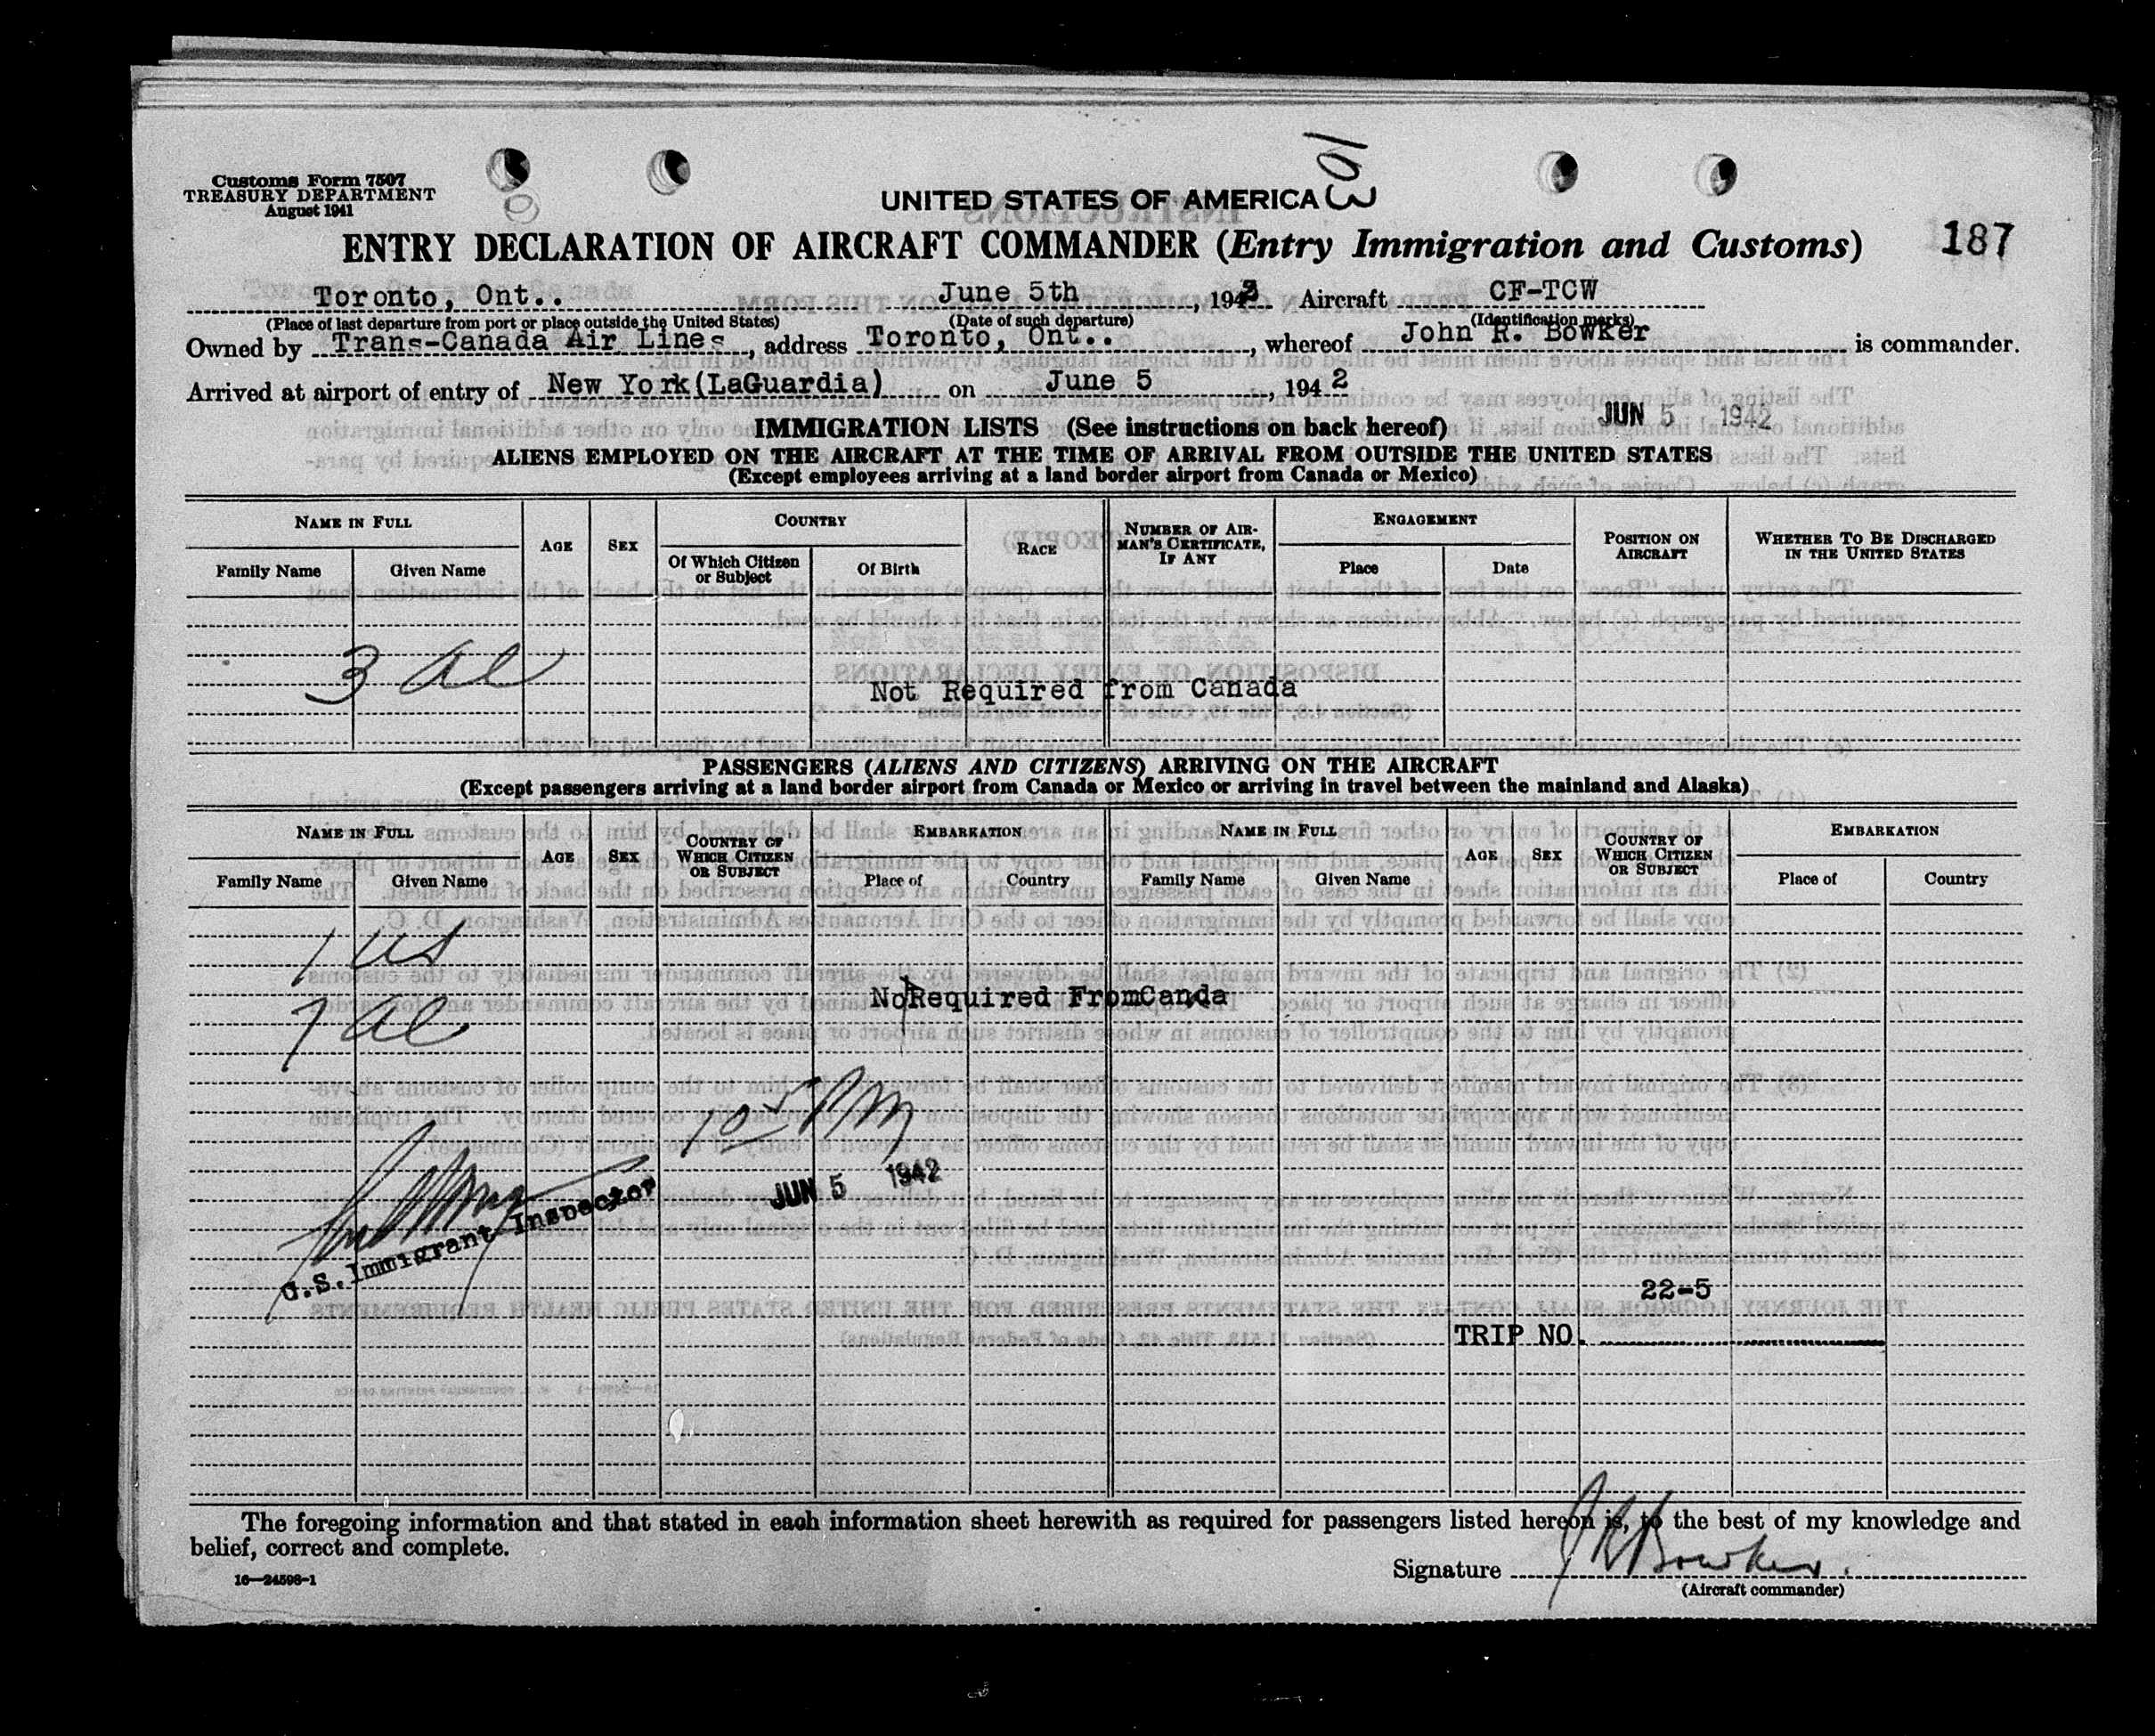 Customs Form 7507
TREASURY DEPARTMENT
August 1941
UNITED STATES OF AMERICA
ENTRY DECLARATION OF AIRCRAFT COMMANDER (Entry Immigration and Customs)
187
Toronto, Ont.. June 5th, 194 Aircraft CF-TCW
(Place of last departure from port or place outside the United States) (Date of such departure) (Identification marks)
Owned by Trans-Canada Air Lines, address Toronto, Ont.., whereof John R. Bowker is commander.
Arrived at airport of entry of New York(LaGuardia) on June 5, 1942
JUN 5 1942
IMMIGRATION LISTS (See instructions on back hereof)
ALIENS EMPLOYED ON THE AIRCRAFT AT THE TIME OF ARRIVAL FROM OUTSIDE THE UNITED STATES
(Except employees arriving at a land border airport from Canada or Mexico)
NAME IN FULL
Family Name Given Name
AGE
SEX
COUNTRY
Of Which Citizen or Subject
Of Birth
RACE
NUMBER OF AIR-
MAN'S CERTIFICATE,
IF ANY
ENGAGEMENT
Place Date
POSITION ON
AIRCRAFT
WHETHER TO BE DISCHARGED
IN THE UNITED STATES
3 al
Not Required from Canada
PASSENGERS (ALIENS AND CITIZENS) ARRIVING ON THE AIRCRAFT
(Except passengers arriving at a land border airport from Canada or Mexico or arriving in travel between the mainland and Alaska)
NAME IN FULL
Family Name Given Name
AGE
SEX
COUNTRY OF
WHICH CITIZEN
OR SUBJECT
EMBARKATION
Place of Country
NAME IN FULL
Family Name Given Name
AGE
SEX
COUNTRY OF
WHICH CITIZEN
OR SUBJECT
EMBARKATION
Place of Country
1 us
7 al
NotRequired FromCanda
10 5 PM
JUN 5 1942
U.S. Immigrant Inspector
22-5
TRIP NO.
The foregoing information and that stated in each information sheet herewith as required for passengers listed hereon is, to the best of my knowledge and
belief, correct and complete.
Signature J R Bowker.
(Aircraft commander)
16—24598-1